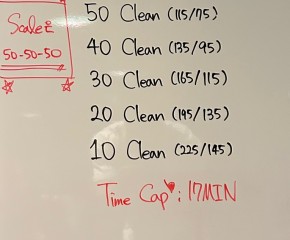 Scale:
50-50-50
50 Clean (115/75)
40 Clean (135/95)
30 Clean (165/115)
20 Clean (195/135)
10 Clean (225/145)
Time Cap: 17MIN